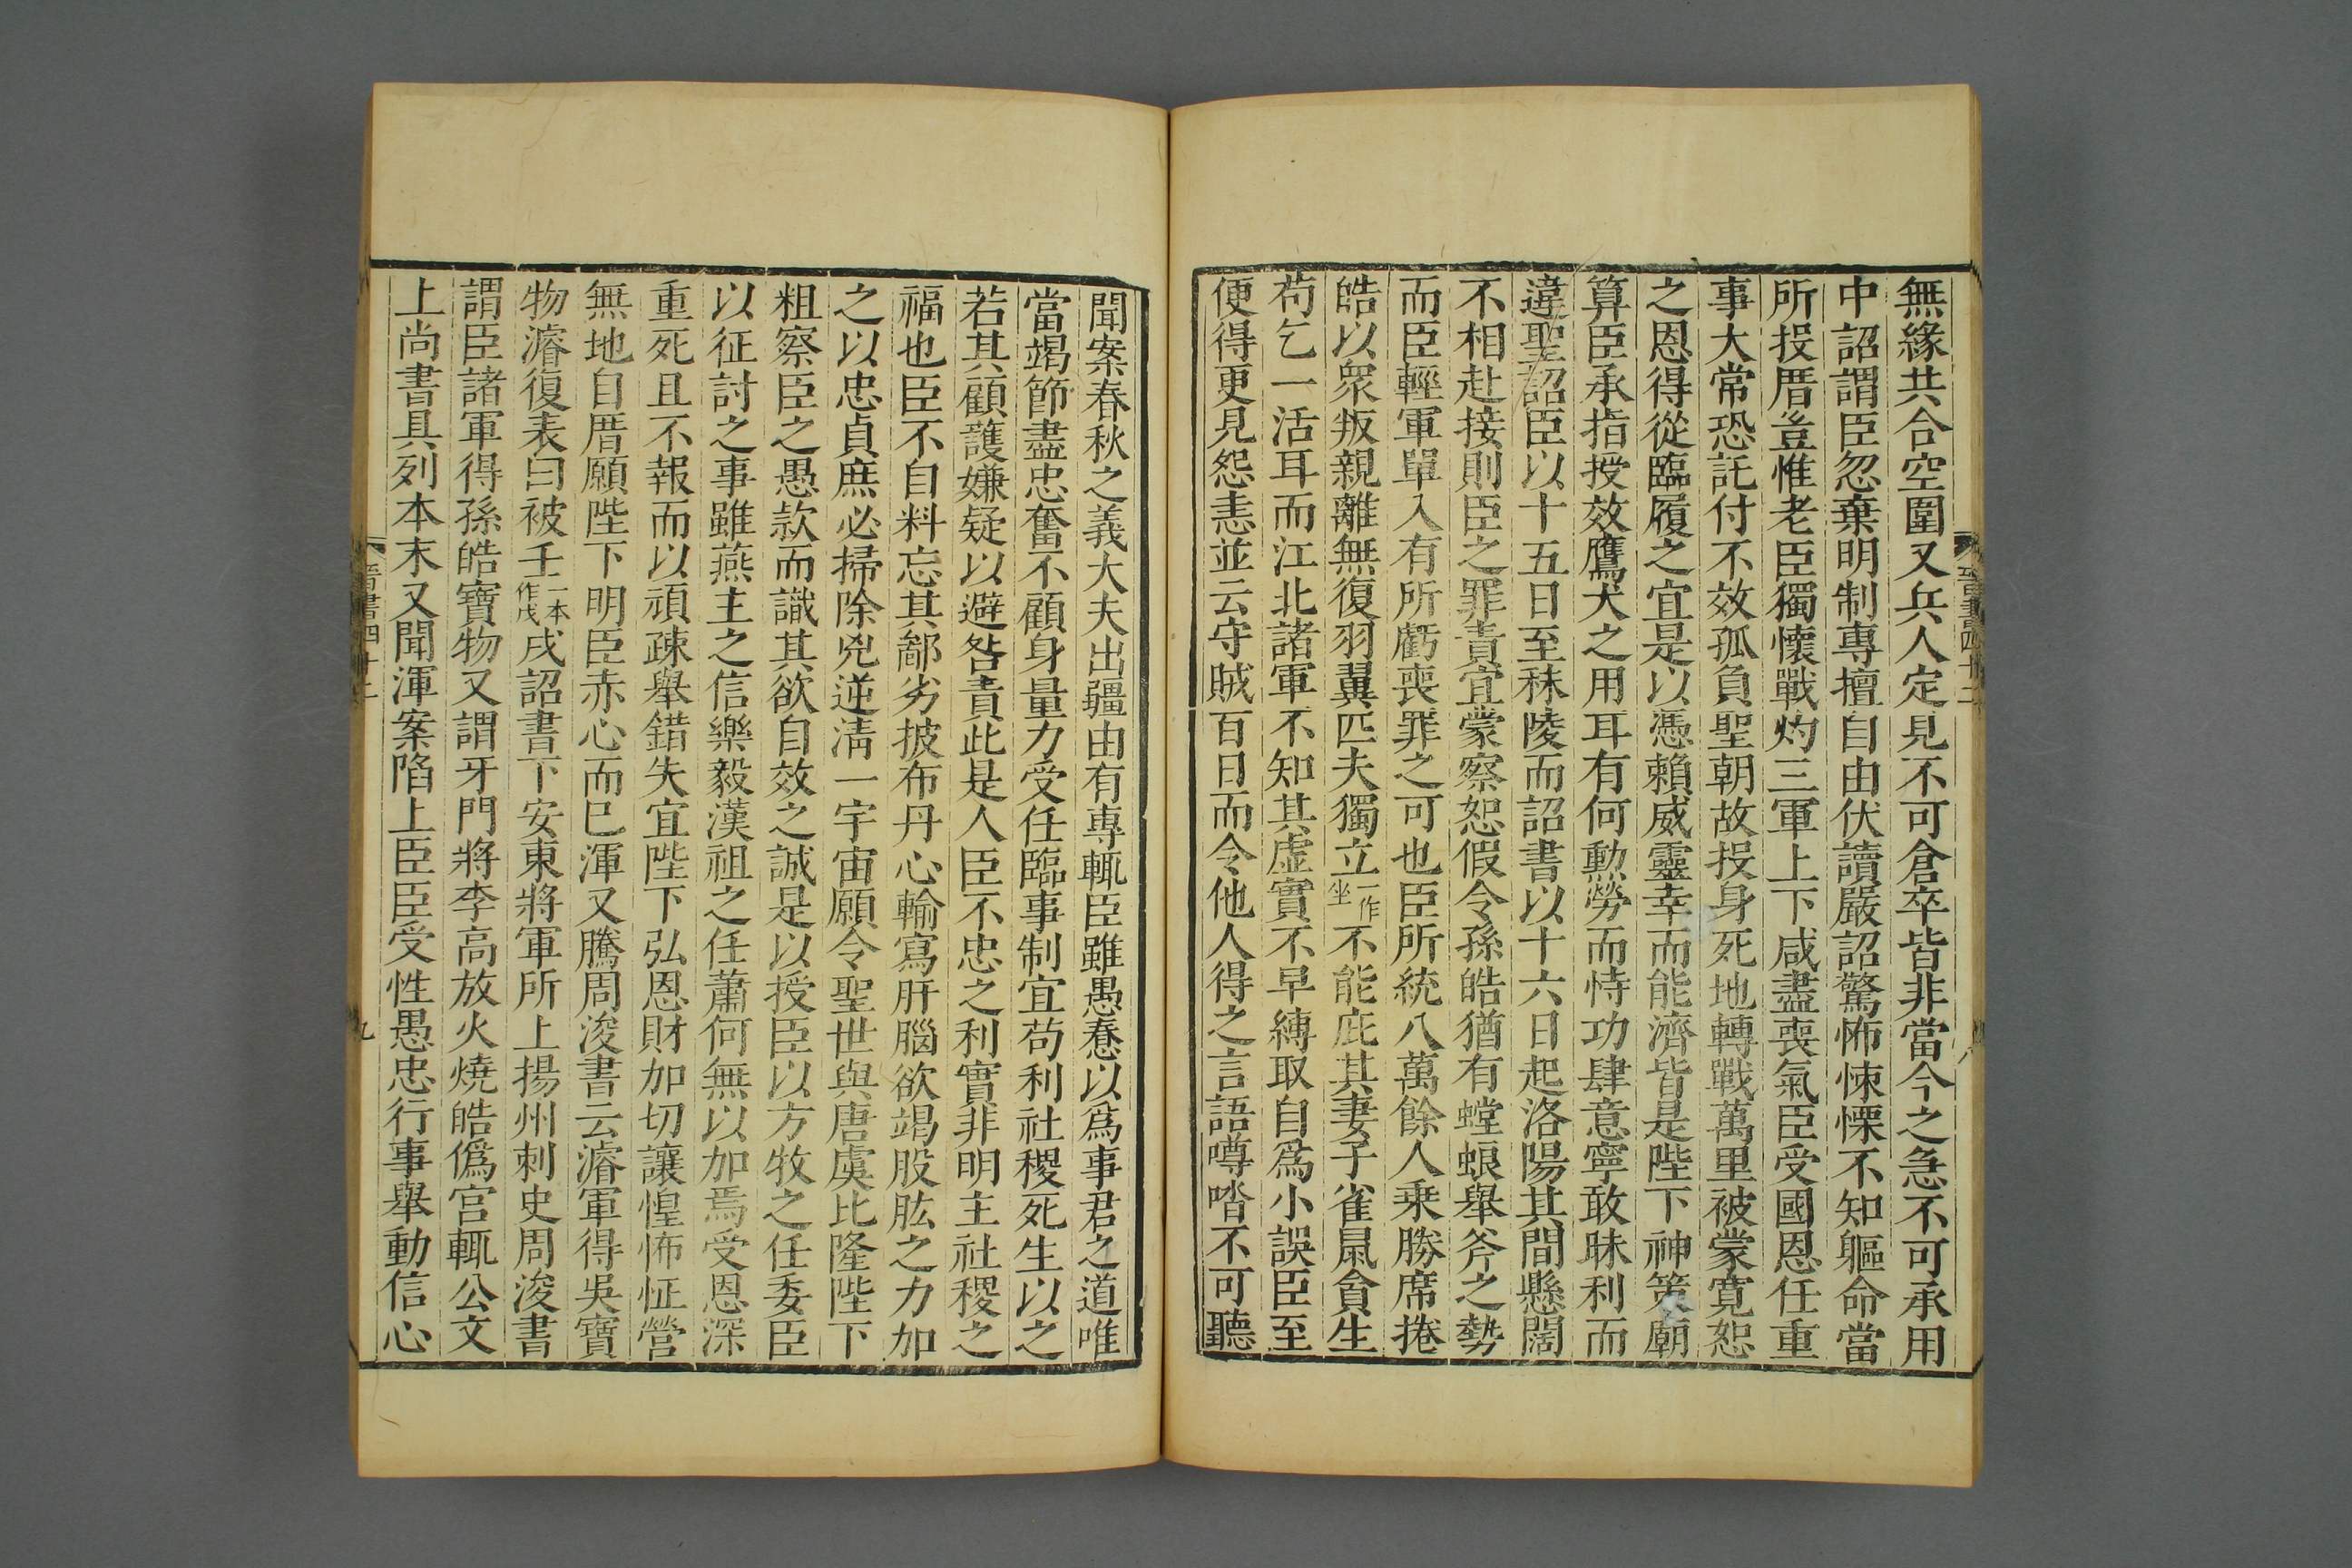 無緣共合空圍又兵人定見不可倉卒皆非當今之急不可承用
中詔謂臣忽棄明制專擅自由伏讀嚴詔驚怖悚慄不知軀命當
所投厝豈惟老臣獨懷戰灼三軍上下咸盡喪氣臣受國恩任重
事大常恐託付不效孤負聖朝故投身死地轉戰萬里被蒙寬恕
之恩得從臨履之宜是以憑賴威靈幸而能濟皆是陛下神策廟
算臣承指授效鷹犬之用耳有何勲勞而恃功肆意寧敢昧利而
違聖詔臣以十五日至秣陵而詔書以十六日起洛陽其間懸闊
不相赴接則臣之罪責宜蒙察恕假令孫皓猶有螳蜋舉斧之勢
而臣輕軍單入有所虧喪罪之可也臣所統八萬餘人乘勝席捲
皓以衆叛親離無復羽翼匹夫獨立一作坐不能庇其妻子雀鼠貪生
苟乞一活耳而江北諸軍不知其虛實不早縛取自爲小誤臣至
便得更見怨恚並云守賊百日而令他人得之言語噂沓不可聽
晉書四十二
八
聞案春秋之義大夫出疆由有專輒臣雖愚憃以爲事君之道唯
當竭節盡忠奮不顧身量力受任臨事制宜苟利社稷死生以之
若其顧護嫌疑以避咎責此是人臣不忠之利實非明主社稷之
福也臣不自料忘其鄙劣披布丹心輸寫肝腦欲竭股肱之力加
之以忠貞庶必掃除兇逆淸一宇宙願令聖世與唐虞比隆陛下
粗察臣之愚款而識其欲自效之誠是以授臣以方牧之任委臣
以征討之事雖燕主之信樂毅漢祖之任蕭何無以加焉受恩深
重死且不報而以頑疎舉錯失宜陛下弘恩財加切讓惶怖怔營
無地自厝願陛下明臣赤心而已渾又騰周浚書云濬軍得吳寶
物濬復表曰被壬一本作戊戌詔書下安東將軍所上揚州刺史周浚書
謂臣諸軍得孫皓寶物又謂牙門將李高放火燒皓僞宮輒公文
上尚書具列本末又聞渾案陷上臣臣受性愚忠行事舉動信心
晉書四十二
九